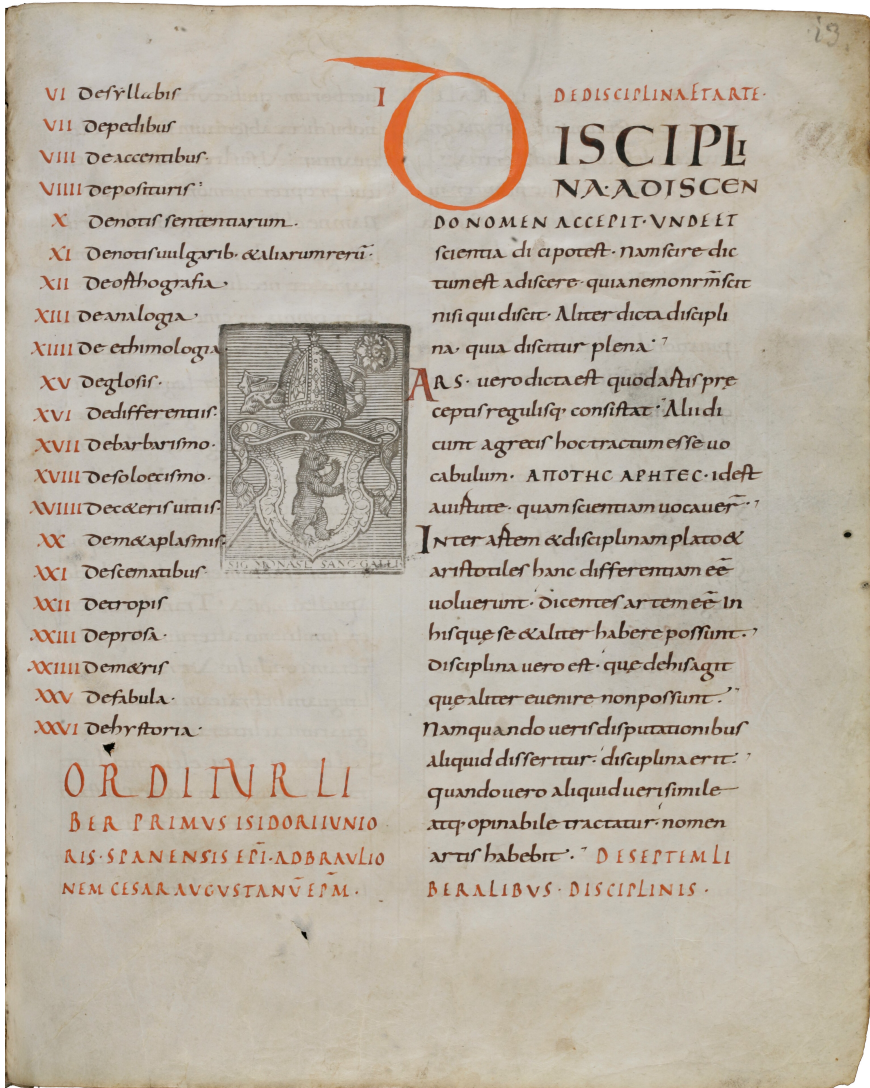 13
VI De syllabis
VII De pedibus
VIII De accentibus·
VIIII De posituris
X De notis sententiarum·
XI De notis uulgarib· & aliarum rerū·
XII De orthografia·
XIII De analogia·
XIIII De ethimologia·
XV De glosis·
XVI De differentiis·
XVII De barbarismo·
XVIII De soloecismo·
XVIIII De c&eris uitiis·
XX De m&aplasmis·
XXI De scematibus·
XXII De tropis
XXIII De prosa·
XXIIII De m&ris
XXV De fabula·
XXVI De hystoria·
ORDITUR LI
BER PRIMVS ISIDORI IVNIO
RIS· SPANENSIS EPĪ· AD BRAVLIO
NEM CESARAVGVSTANŪ EPM̄·
SIG MONAST SANC GALLI
I DE DISCIPLINA ET ARTE·
DISCIPLI
NA· A DISCEN
DO NOMEN ACCEPIT· VNDE ET
scientia dici potest· Nam scire dic
tum est a discere· quia nemo nr̄m scit
nisi qui discit· Aliter dicta discipli
na· quia discitur plena·
ARS· uero dicta est quod artis pre
ceptis regulisq· consistat· Alii di
cunt a grecis hoc tractum esse uo
cabulum· ΑΠΟΤΗC ΑΡΗΤΕC· id est
a uirtute· quam scientiam uocauer̄·
Inter artem & disciplinam plato &
aristotiles hanc differentiam eē
uoluerunt· dicentes artem eē In
his que se & aliter habere possunt·
Disciplina uero est· que de his agit
que aliter euenire non possunt·
Nam quando ueris disputationibus
aliquid disseritur· disciplina erit·
quando uero aliquid uerisimile
atq· opinabile tractatur· nomen
artis habebit· DE SEPTEM LI
BERALIBVS· DISCIPLINIS·